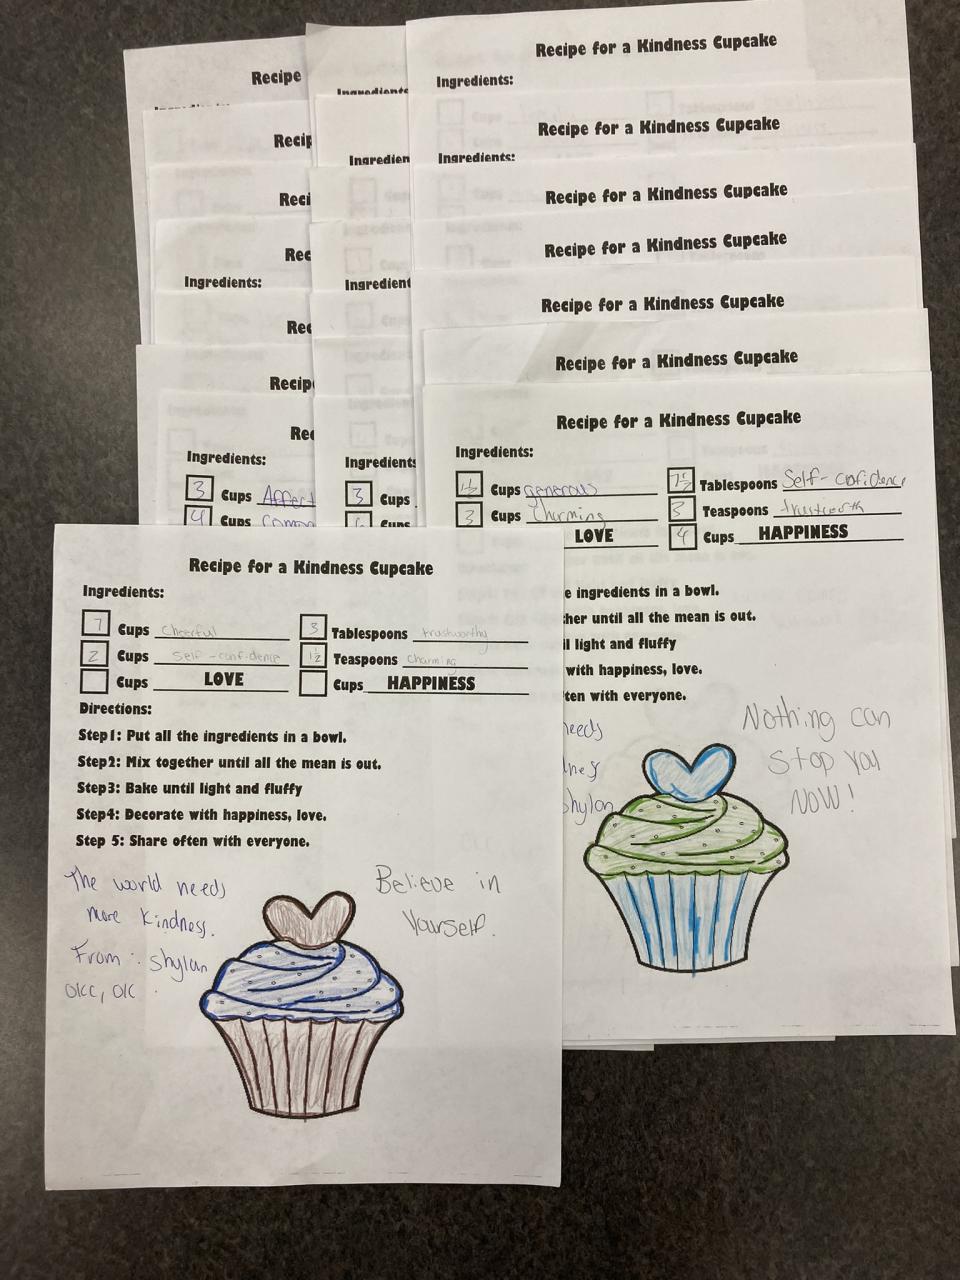 Recipe for a Kindness Cupcake
Ingredients:
Recipe for a Kindness Cupcake
Ingredients:
Recipe for a Kindness Cupcake
Recipe for a Kindness Cupcake
Recipe for a Kindness Cupcake
Recipe for a Kindness Cupcake
Recipe
Ingredients
Recip
Ingredien
Reci
Rec
Ingredients:
Ingredient
Rec
Recip
Rec
Ingredients:
3 Cups Affect
4 Cups Compa
Ingredients
3 Cups
Cups
Recipe for a Kindness Cupcake
Ingredients:
1½ Cups generous
3 Cups Charming
LOVE
7½ Tablespoons Self-confidence
3 Teaspoons trustworth
4 Cups HAPPINESS
e ingredients in a bowl.
her until all the mean is out.
il light and fluffy
with happiness, love.
ten with everyone.
needs
ness
Shylan
Nothing can
stop you
NOW!
Recipe for a Kindness Cupcake
Ingredients:
7 Cups Cheerful
2 Cups Self-confidence
Cups LOVE
3 Tablespoons trustworthy
1½ Teaspoons Charming
Cups HAPPINESS
Directions:
Step1: Put all the ingredients in a bowl.
Step2: Mix together until all the mean is out.
Step3: Bake until light and fluffy
Step4: Decorate with happiness, love.
Step 5: Share often with everyone.
The world needs
more Kindness.
From: Shylan
OKC, OK
Believe in
Yourself.